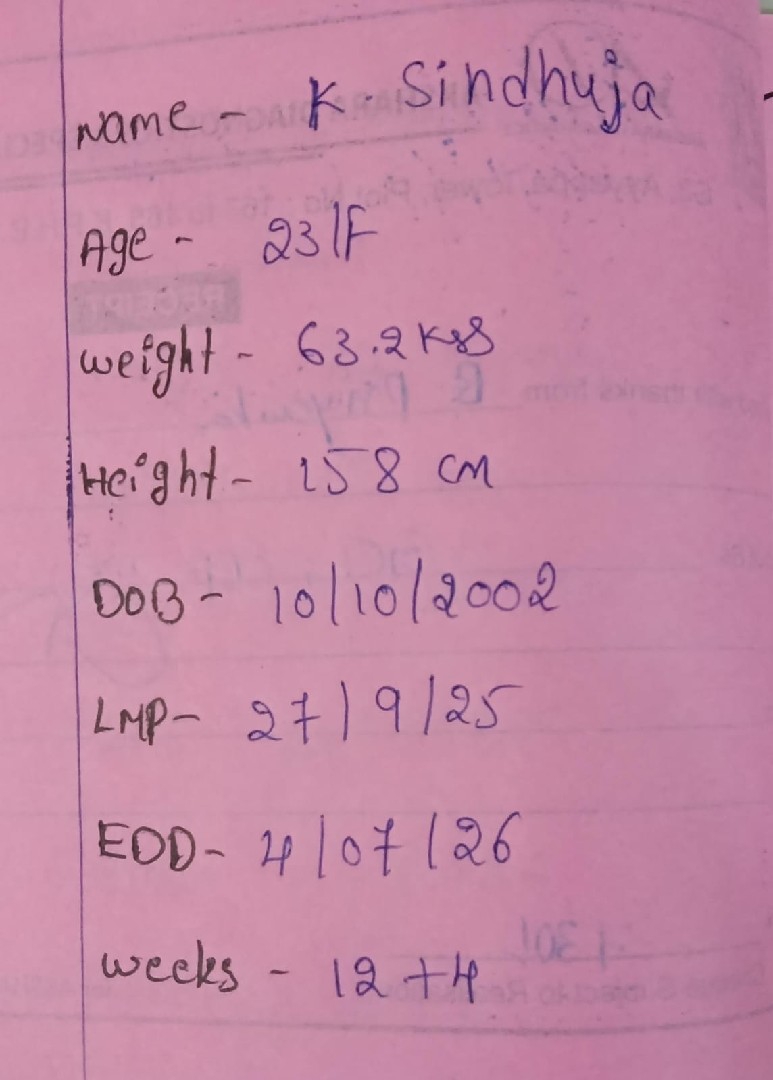 Name - K. Sindhuja
Age - 23/F
weight - 63.2 Kgs
Height - 158 CM
DOB - 10/10/2002
LMP - 27/9/25
EDD - 4/07/26
weeks - 12+4